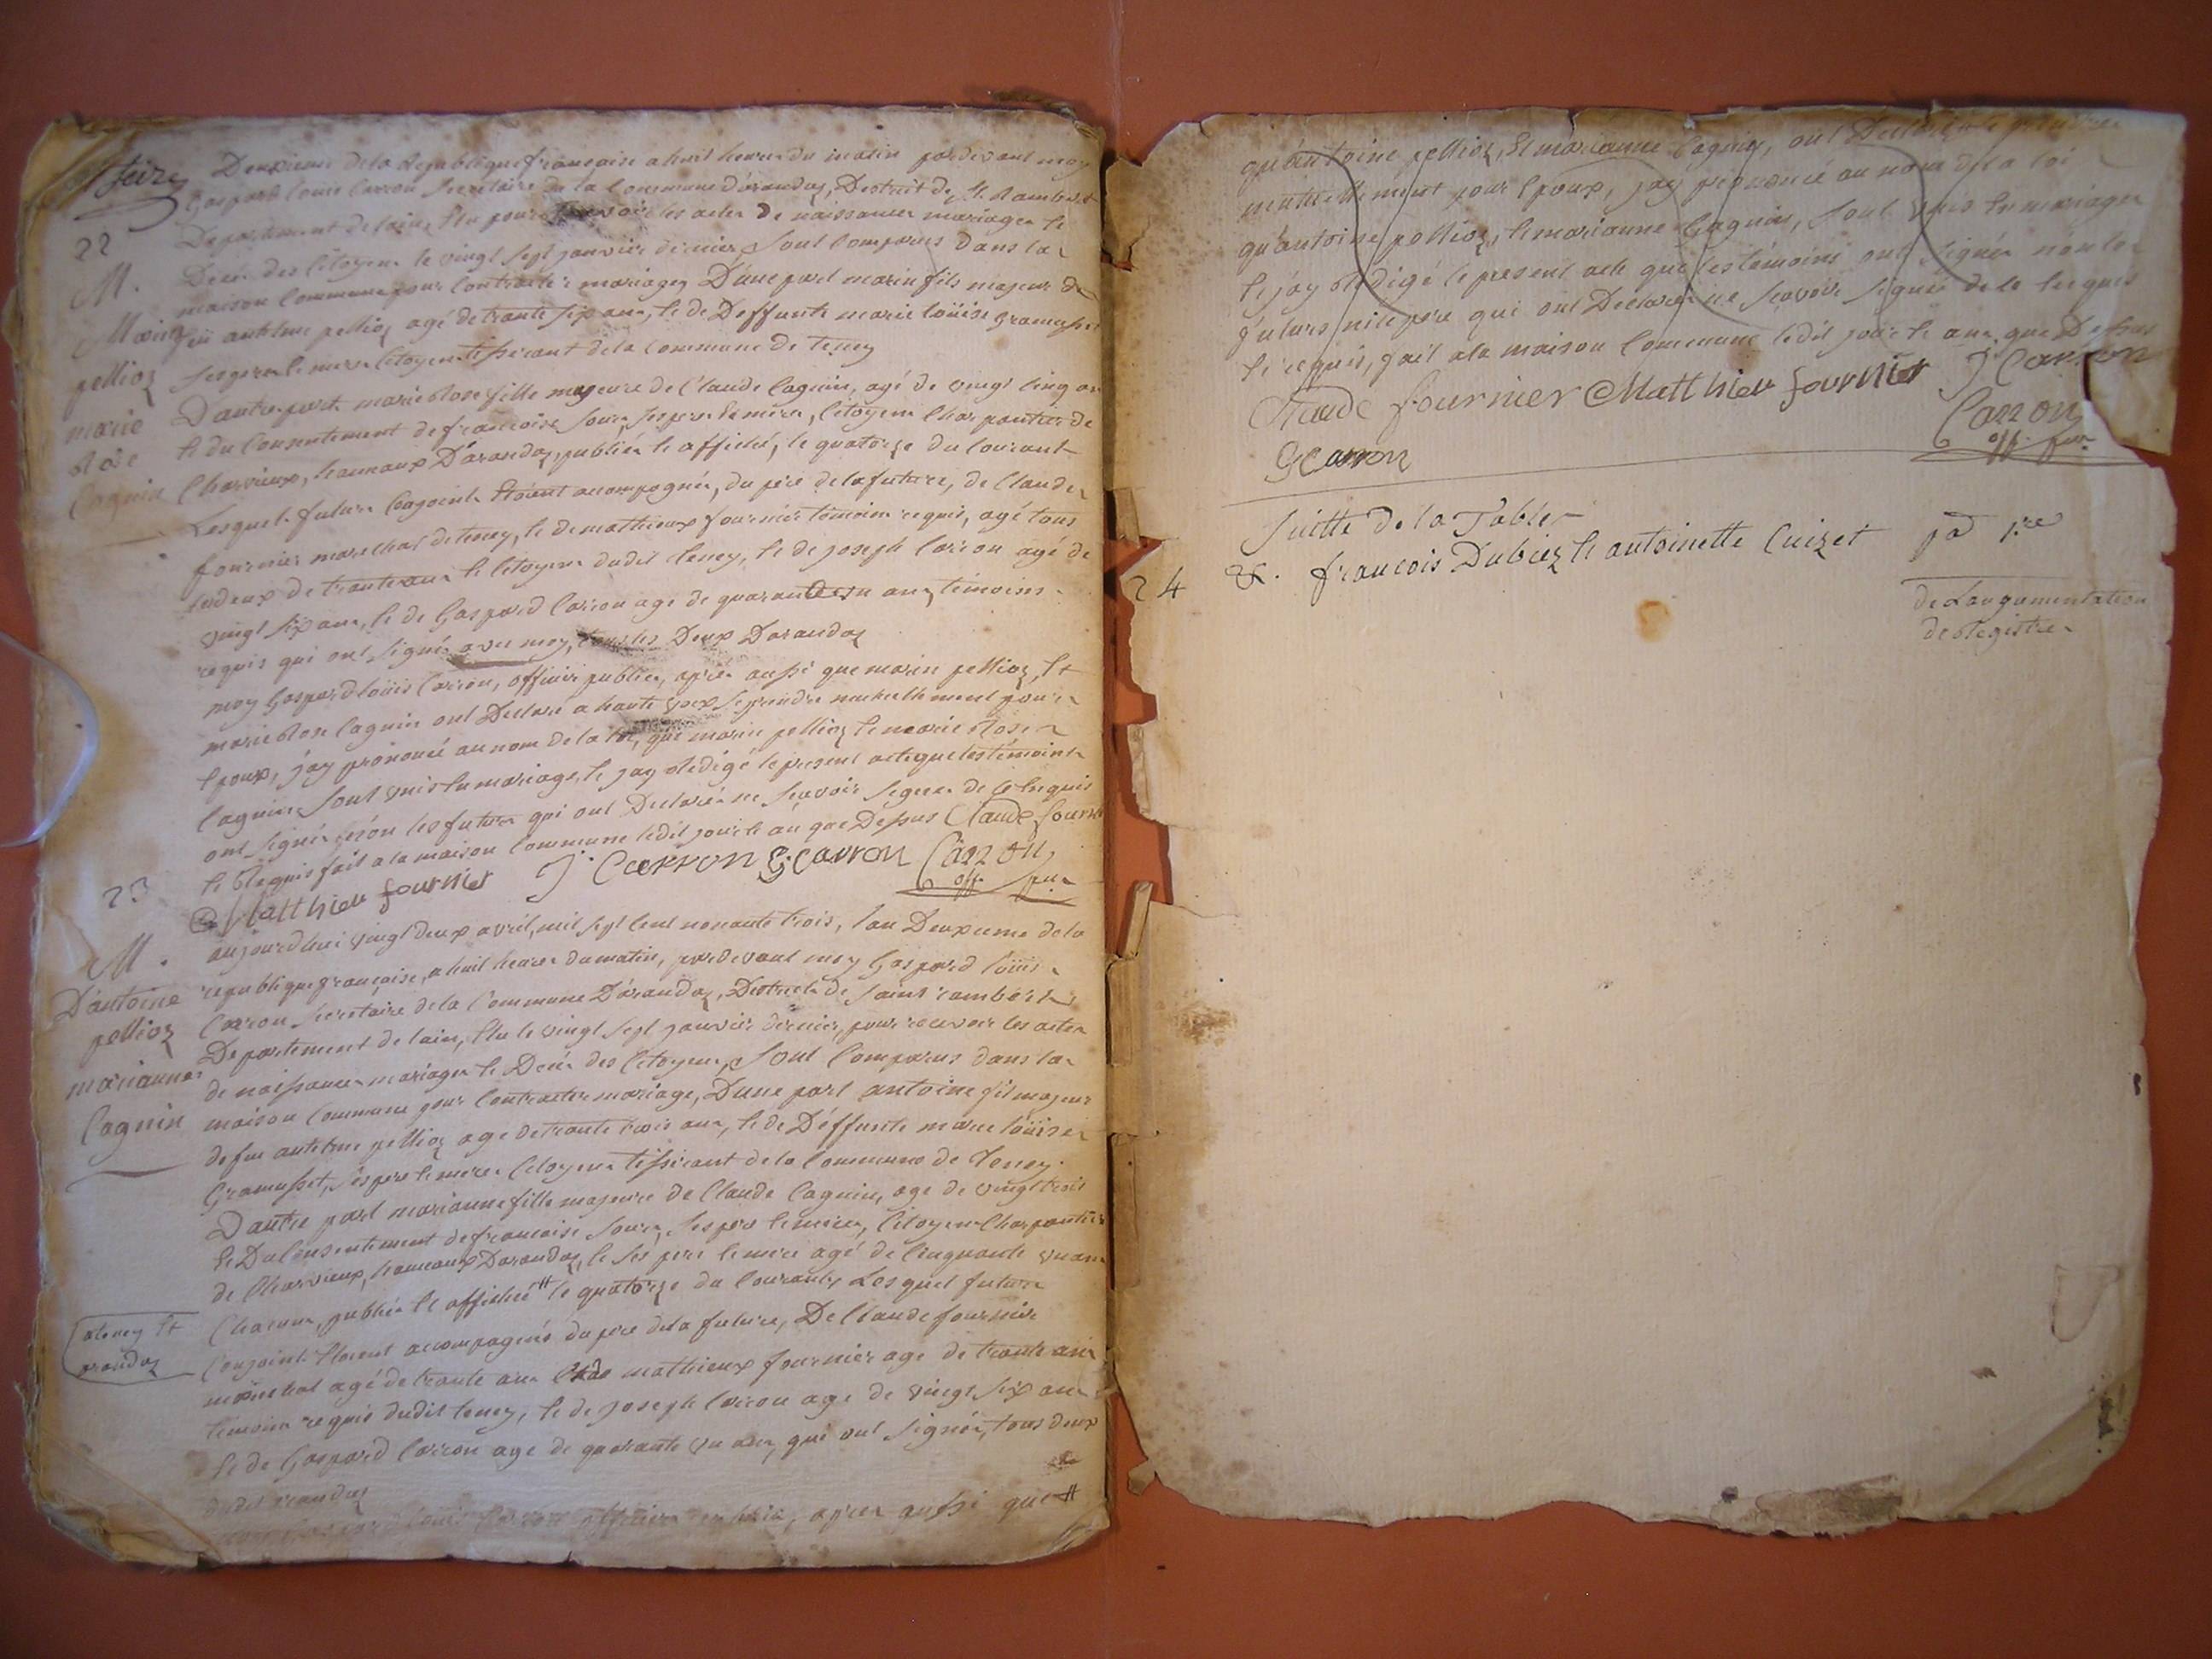 Seize
Deuxieme dela Republique francaise a huit heures du matin pardevant moy
Gaspard louis Carron secretaire de la Commune d'arandaz, Destrict de St Rambert
Departement de lain, Elu pour recevoir les actes De naissances mariages Et
22
Decés des Citoyens le vingt sept janvier dernier, Sont Comparus Dans la
M.
maison Commune pour Contracter mariages D'une part marin fils majeur de
Marin
feu antelme pellioz agé de trante six ans, Et de Deffunte marie loüise gramusset
pellioz
ses pere Et mere Citoyens tisserant de la Commune de teney
marie
D'autre part marie Rose fille majeure de Claude Cagnin, agé de vingt cinq an
Rose
Et du Consentement de francoise ses pere Et mere, Citoyens Charpentier de
Cagnin
Charvieux, hameaux D'arandaz, publiés Et affiché, le quatorze du Courant
Lesquels futurs Cogoints Etoient acompagnés, du pere dela future, de Claude
fournier marechal de teney, Et de mathieux fournier temoins requis, agé tous
les deux de trante ans Et Citoyens dudit teney, Et de joseph Carron agé de
vingt six ans, Et de Gaspard Carron age de quarante un ans, temoins
requis qui ont signés avec moy, tous les Deux Darandaz
moy Gaspard loüis Carron, officier public, aprés aussi que marin pellioz, Et
marie Rose Cagnin ont Declaré a haute voix se prendre mutuellement pour
Epoux, j'ay prononcé au nom de la loi, que marin pellioz Et marie Rose
Cagnin Sont unis En mariage, Et jay Redigé le present acte que les temoins
ont signés non les futurs qui ont Declarés ne scavoir signer de ce Enquis
Et Requis fait a la maison Commune ledit jour Et an que Dessus Claude fournier
Matthieu fournier J. Carron G Carron Carron
off. pu.
23
aujourdhui vingt deux avril, mil sept Cent nonante trois, lan Deuxieme dela
M.
republique francaise, a huit heures du matin, pardevant moy Gaspard loüis
D'antoine
Carron secretaire dela Commune D'arandaz, Destrict de saint rambert
pellioz
Departement de lain, Elu le vingt sept janvier dernier, pour recevoir les actes
marianne
de naissances mariages Et Decés des Citoyens, Sont Comparus dans la
Cagnin
maison Commune pour Contracter mariage, D'une part antoine fils majeur
de feu antelme pellioz age de trante trois ans, Et de Deffunte marie loüise
Gramusset, ses pere Et mere Citoyens tisserant dela Commune de Teney
Dautre part marianne fille majeure de Claude Cagnin, age de vingt trois
Et Du Consentement de francoise ses pere Et mere, Citoyens Charpentier
de Charvieux, hameaux Darandaz, Et ses pere Et mere agé de Cinquante un ans
Chacun, publiés Et affiché # le quatorze du Courant, Lesquel futurs
a teney Et
arandaz
Conjoints Etoient accompagnés du pere dela future, De Claude fournier
marechal agé de trante ans Et de mathieux fournier age de trante ans
temoins requis dudit teney, Et de joseph Carron age de vingt six ans
Et de Gaspard Carron age de quarante un ans, qui ont signés, tous deux
dudit arandaz
moy Gaspard louis Carron officier public, aprés aussi que #
qu'antoine pellioz, Et marianne Cagnin, ont Declaré se prendre
mutuellement pour Epoux, jay prononcé au nom de la loi
qu'antoine pellioz, Et marianne Cagnin, sont unis En mariages
Et j'ay Redigé le present acte que les témoins ont signés non les
futurs ni le pere qui ont Declarés ne scavoir signer de ce Enquis
Et requis, fait a la maison Commune ledit jour Et an que Dessus
Claude fournier Matthieu fournier J Carron
G Carron Carron
off. pu.
Suitte de la Table
24 &. francois Dubiez Et antoinette Cuizet pa 1re
de Laugumentation
de Registre